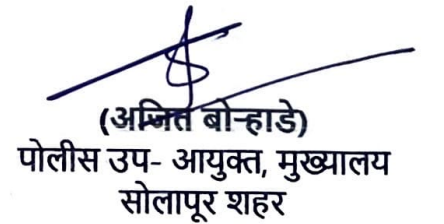 (अजित बोऱ्हाडे)
पोलीस उप- आयुक्त, मुख्यालय
सोलापूर शहर